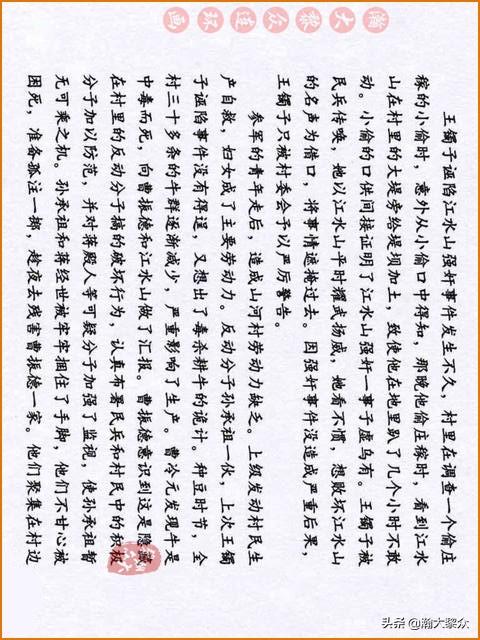 瀚大黎众连环画
王镯子诬陷江水山强奸事件发生不久，村里在调查一个偷庄
稼的小偷时，意外从小偷口中得知，那晚他偷庄稼时，看到江水
山在村里的大堤旁给堤坝加土，致使他在地里趴了几个小时不敢
动。小偷的口供间接证明了江水山强奸一事子虚乌有。王镯子被
民兵传唤，她以江水山平时耀武扬威，她看不惯，想败坏江水山
的名声为借口，将事情遮掩过去。因强奸事件没造成严重后果，
王镯子只被村委会予以严厉警告。
参军的青年走后，造成山河村劳动力缺乏。上级发动村民生
产自救，妇女成了主要劳动力。反动分子孙承祖一伙，上次王镯
子诬陷事件没有得逞，又想出了毒杀耕牛的诡计。种豆时节，全
村三十多条的牛群逐渐减少，严重影响了生产。曹冷元发现牛是
中毒而死，向曹振德和江水山做了汇报。曹振德意识到这是隐藏
在村里的反动分子搞的破坏行为，认真布置民兵和村民中的积极
分子加以防范，并对蒋殿人等可疑分子加强了监视，使孙承祖暂
无可乘之机。孙承祖和蒋经世被牢牢捆住了手脚，他们不甘心被
困死，准备孤注一掷，趁夜去残害曹振德一家。他们聚集在村边
头条 @瀚大黎众